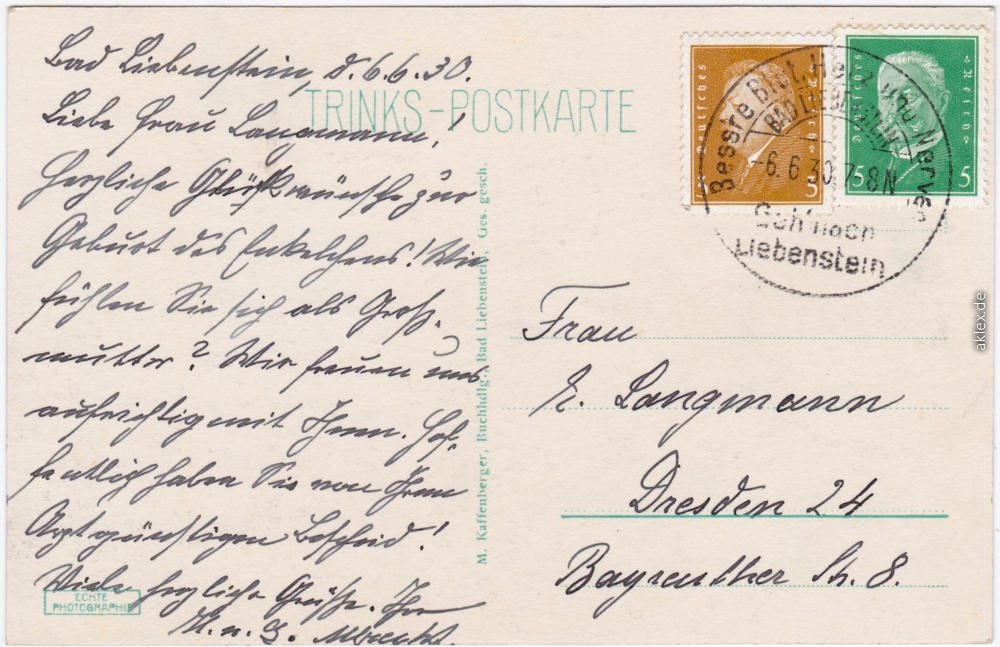 Bad Liebenstein, d. 6.6.30.
Liebe Frau Langmann!
Herzliche Glückwünsche zur
Geburt des Enkelchens! Wie
fühlen Sie sich als Groß-
mutter? Wir freuen uns
aufrichtig mit Ihnen. Hof-
fentlich haben Sie von Ihrem
Arzt günstigen Bescheid!
Viele herzliche Grüße. Ihre
ECHTE
PHOTOGRAPHIE
TRINKS-POSTKARTE
M. Kaffenberger, Buchhdlg., Bad Liebenstein, Ges. gesch.
Deutsches Reich
3
Deutsches Reich
5 5
Bessre Blut, Herz und Nerven
BAD LIEBENSTEIN
-6.6.30.7-8N
Geh nach
Liebenstein
Frau
E. Langmann
Dresden 24
Bayreuther Str. 8.
aklex.de